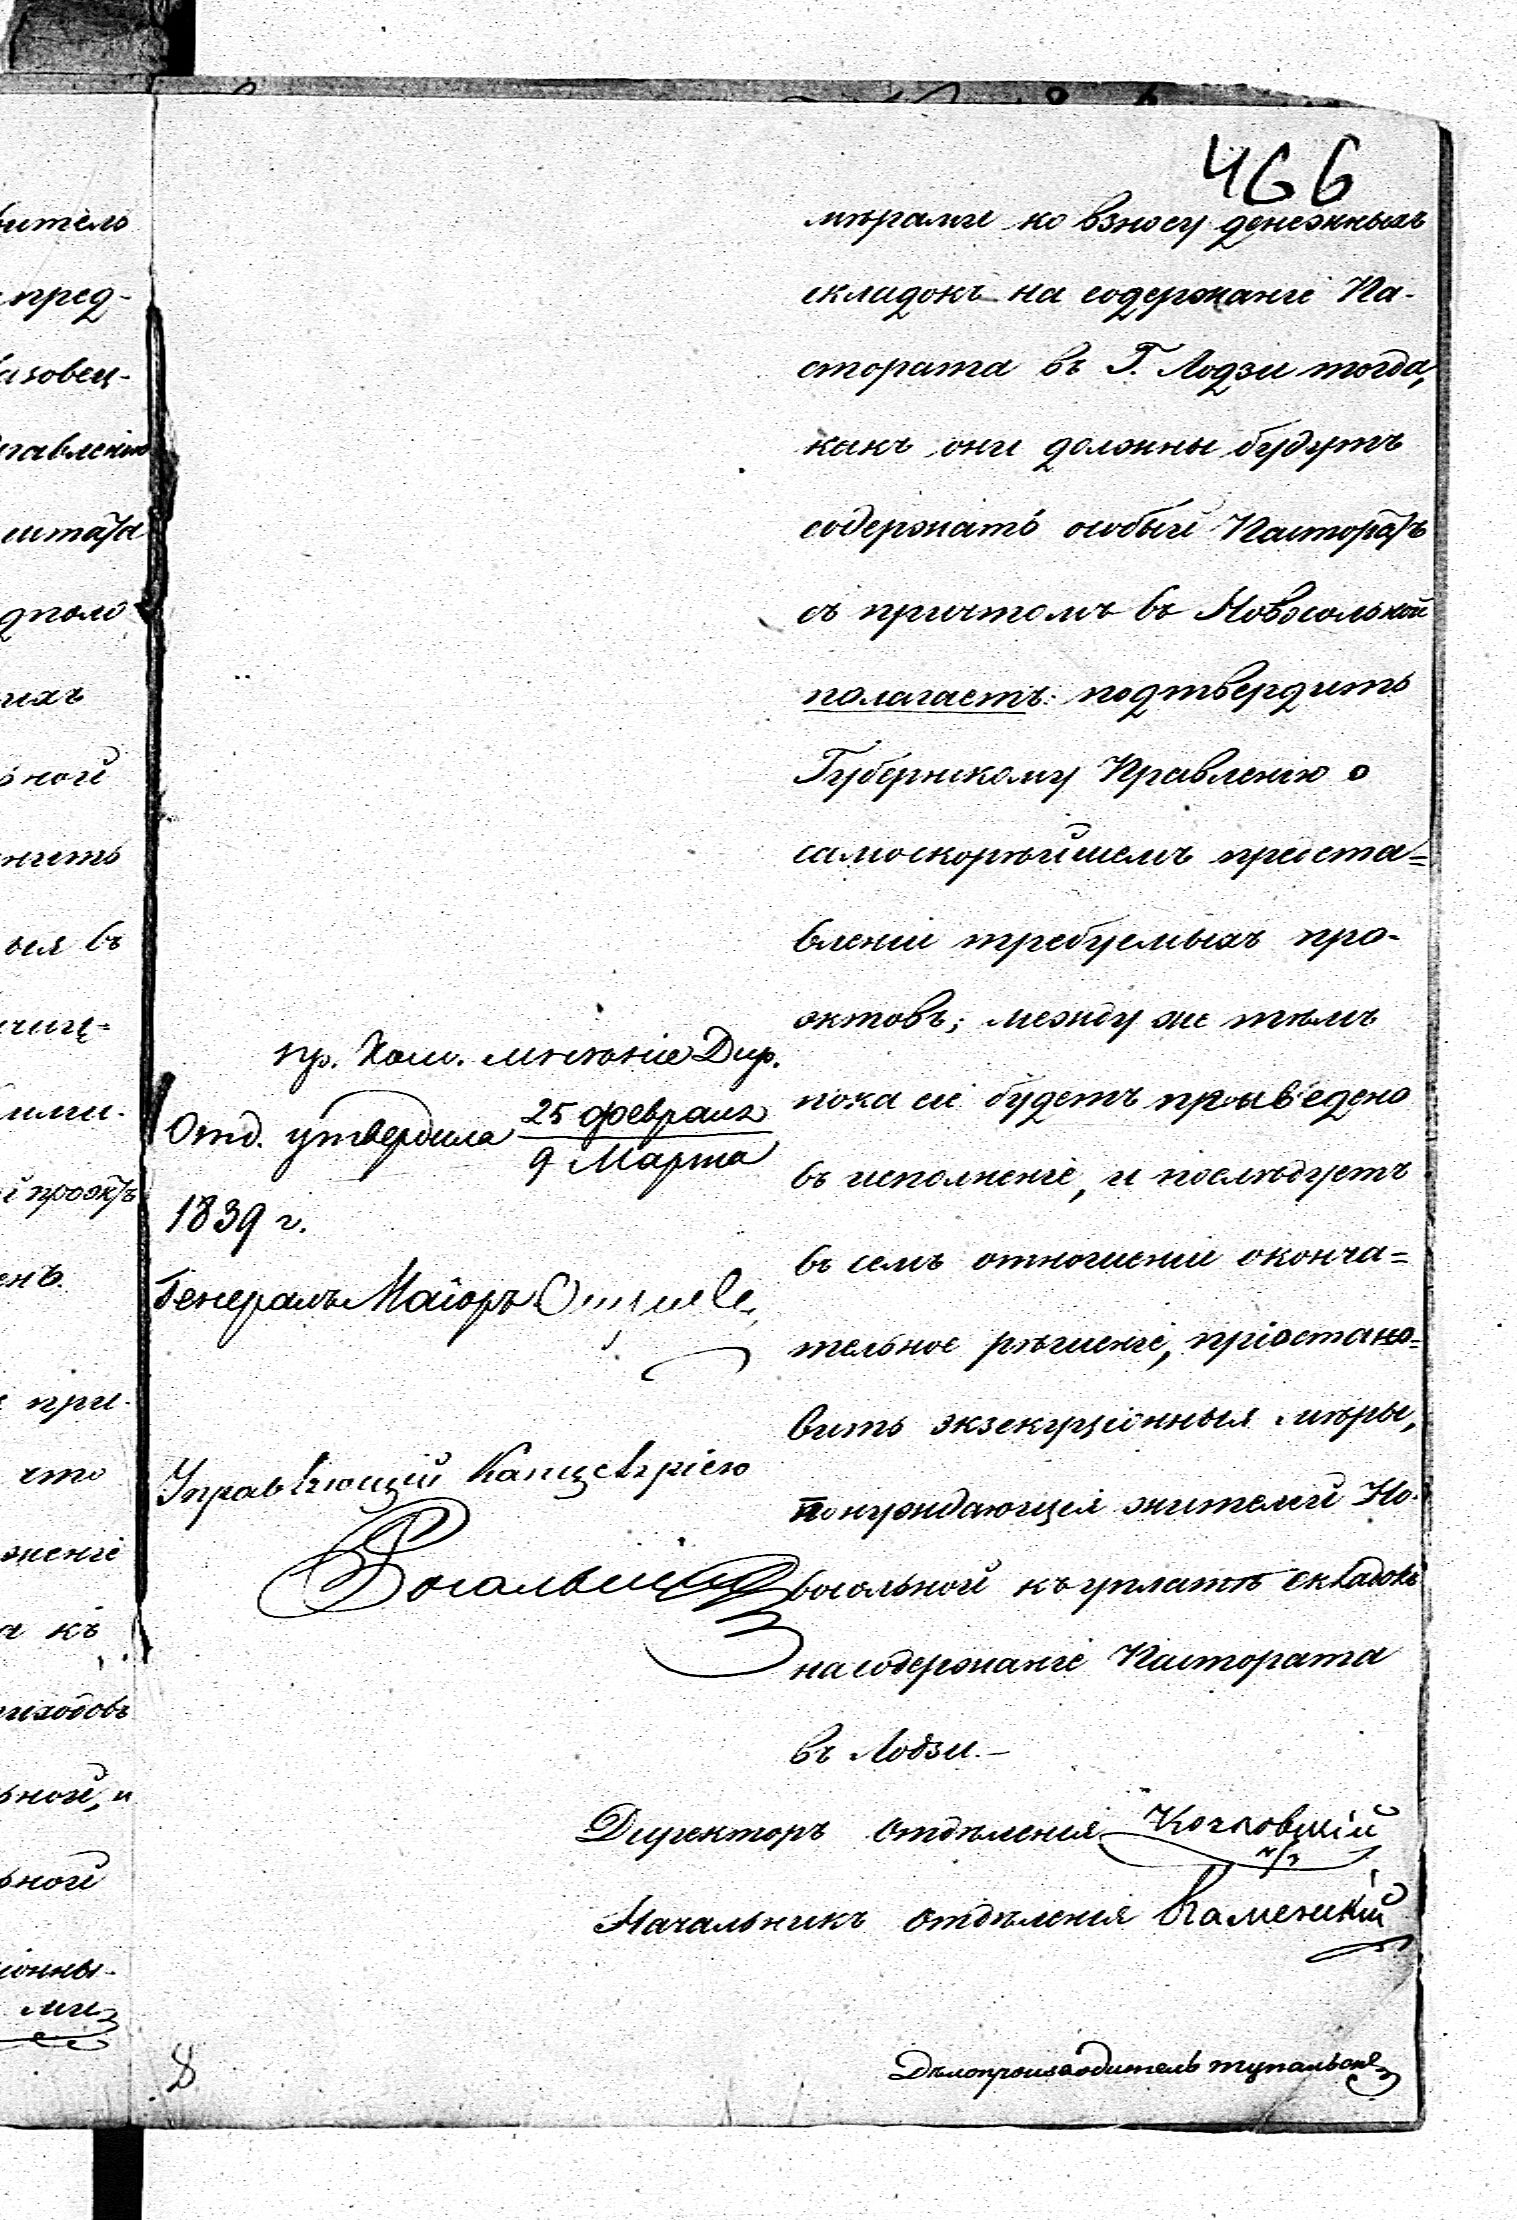 466
мѣрами ко взносу денежныхъ
складокъ на содержаніе Па-
стората въ Г. Лодзи тогда,
какъ они должны будутъ
содержать особый Пасторатъ
съ причтомъ въ Новосольной
полагаетъ: подтвердить
Губернскому Правленію о
самоскорѣйшемъ предста=
вленіи требуемыхъ про-
эктовъ; между же тѣмъ
пока сіе будетъ приведено
въ исполненіе, и послѣдуетъ
въ семъ отношеніи оконча=
тельное рѣшеніе, пріостано=
вить экзекуціонныя мѣры,
понуждающія жителей Но-
восольной къ уплатѣ складокъ
на содержаніе Пастората
въ Лодзи.—
Директоръ Отдѣленія
Начальникъ Отдѣленія Каменскій
Дѣлопроизводитель
пр. Ком. мнѣніе Дир.
Отд. утвердила 25 февраля
9 Марта
1839 г.
Генералъ Маіоръ
Управляющій Канцеляріею
8
битель
пред-
азовец-
равленію
штата
дполо
ихъ
ьной
нить
ыя въ
ими-
проэктъ
енъ.
при-
что
женіе
а къ
риходовъ
ьной, и
ьной
іонны-
ми